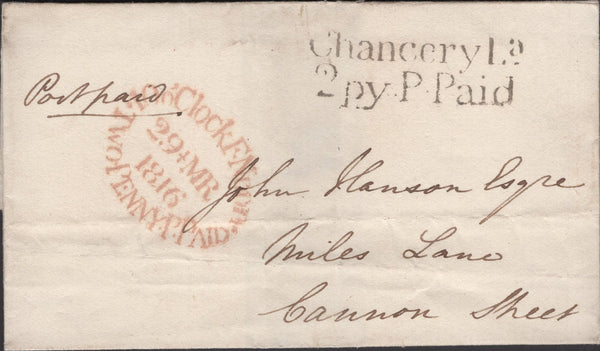 Chancery La
2py P. Paid
Post paid
6 o'Clock EV
29 MR
1816
TWO PENNY P. PAID
John Hanson Esqre
Miles Lane
Cannon Street